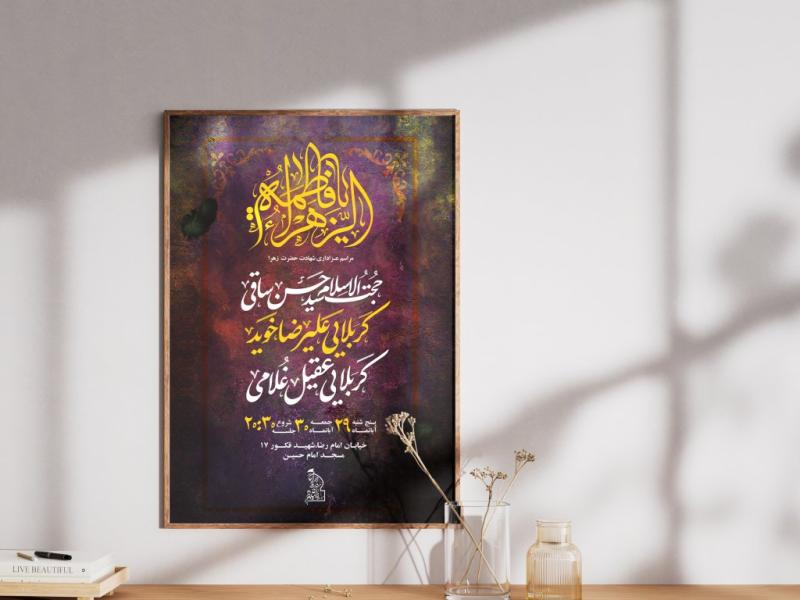 یا فاطمة الزهراء
مراسم عزاداری شهادت حضرت زهرا
حجت الاسلام سید حسن ساقی
کربلایی علیرضا خوید
کربلایی عقیل غلامی
پنج شنبه ۲۹ آبانماه جمعه ۳۰ آبانماه شروع جلسه ۲۰:۳۰
خیابان امام رضا،شهید فکور ۱۷
مسجد امام حسین
LIVE BEAUTIFUL